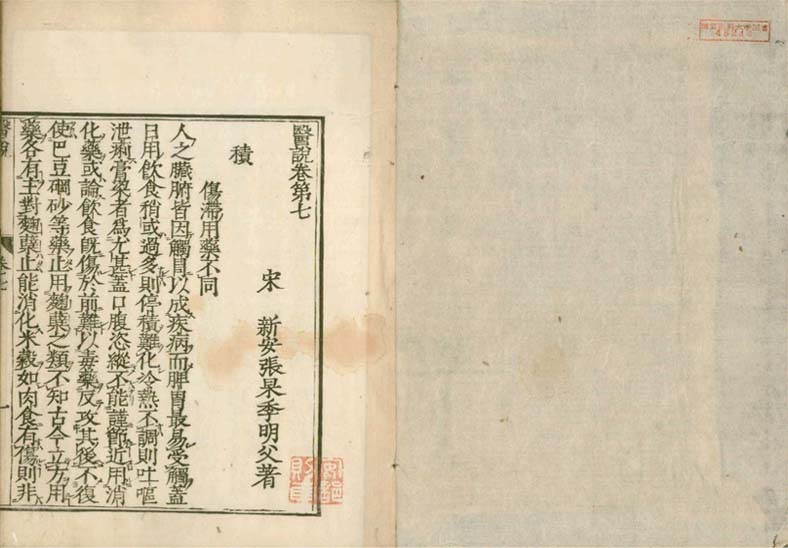 醫說卷第七
宋 新安張杲季明父著
積
傷滯用藥不同
人之臟腑皆因觸冒以成疾病而脾胃最易受觸蓋
日用飲食稍或過多則停積難化冷熱不調則吐嘔
泄痢膏粱者爲尤甚蓋口腹恣縱不能謹節近用消
化藥或論飲食旣傷於前難以毒藥反攻其後不復
使巴豆硇砂等藥止用麴蘖之類不知古今立方用
藥各有主對麴蘖止能消化米穀如肉食有傷則非
醫說
卷七
一